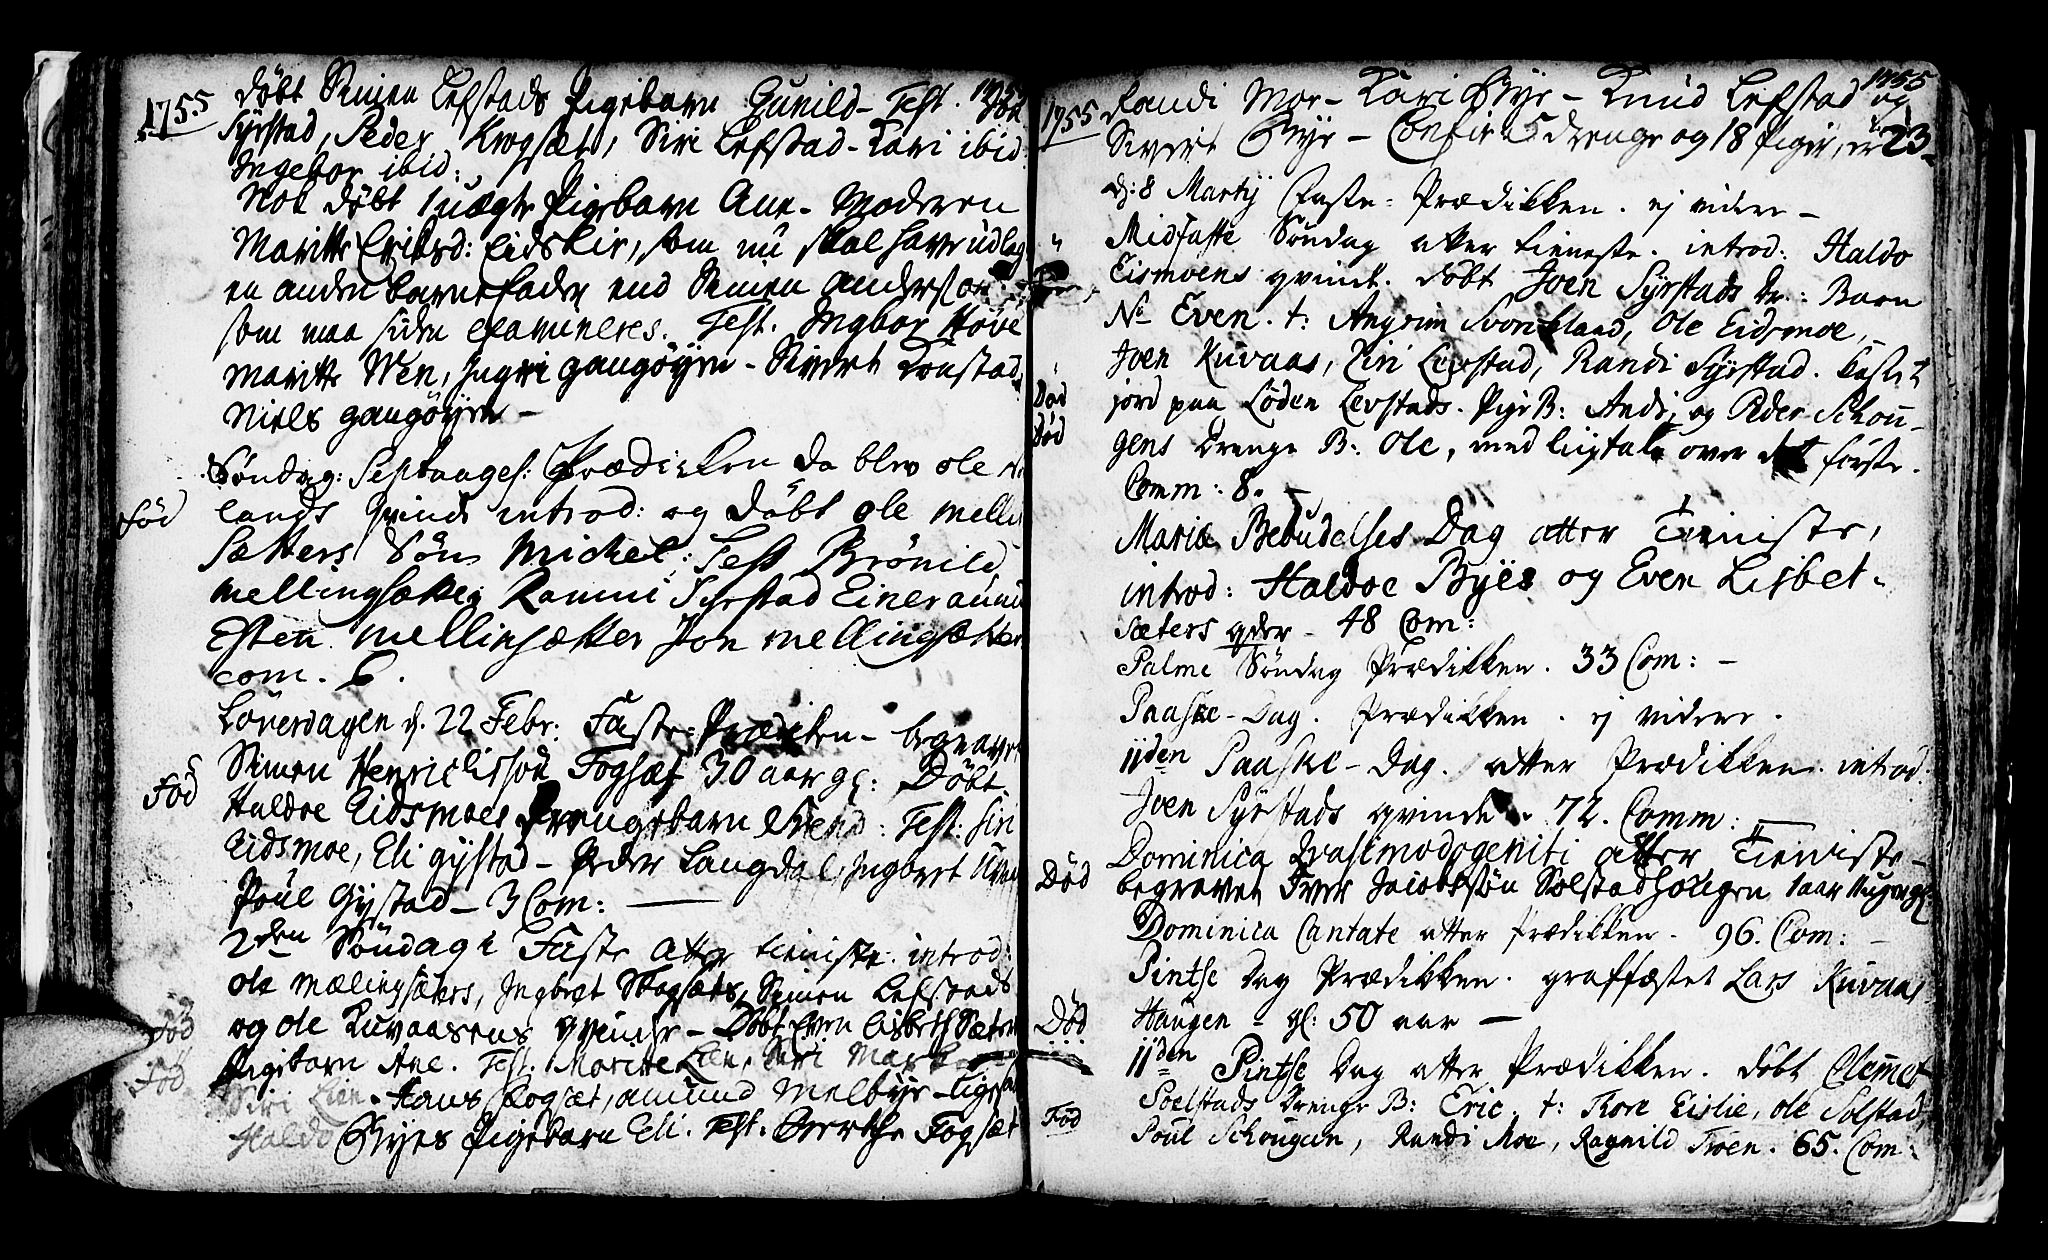 1755
døbt Simen Lefstads Pigebarn Gunild - Test. Jon
Syrstad, Peder Krogsæt, Siri Lefstad - Kari ibid:
Ingebor ibid:
Nok døbt 1 uægte Pigebarn Ane - Moderen
Maritte Erichsd: Eidslir, som nu skal have udlagt
en anden barnefader end Simen Anderson
som maa siden examineres. Test. Ingbor Høve
Maritte Wen, Ingri gangøyen - Sivert Lonstad,
Niels gangøyen -
Søndag: Septuages: Prædicken da blev ole
Fød
lands qvinde introd: og døbt ole melling
Sætters Søn Michel: Test Brønild
mellingsætter Ranni Syrstad Einer amun
Esten mellinsætter Jon mellingsætter
com. 6.
Löverdagen d. 22 Febr: Faste-Prædiken - begravet
Simon Henrichsson Fogsæt 30 aar gl: Døbt
Fød
Haldoe Eidsmoes Drengebarn Erend: Test: Siri
Eidsmoe, Eli gystad - Peder Langdal, Ingbret
Poul Gystad - 3 Com: -
2den Søndag i Faste after tieniste introd:
ole mælingsæters, Ingbret Skogsæts, Simon Lefstads
Fød
og ole Kuvaasens qvinder - Døbt Even Lisbeth Sæters
Fød
Pigebarn Ane. Test. Maritte Lien, Siri
Siri Lien - Hans Fogsæt, amund Melbye -
Haldo Byes Pigebarn Eli. Test. Berthe Fogsæt
1755
1755
Randi Moe - Kari Bye - Knud Lefstad og
Sivert Bye - Confir: 5 drenge og 18 Piger, er 23 -
d: 8 Martij Faste-Prædikken. ej videre -
Midfaste Søndag atter tieneste. introd: Haldo
Eismoens qvinde. døbt Joen Syrstads Dr: Barn
No Even. t: Angrim Svorkland, Ole Eidsmoe,
Joen Kuvaas, Siri Levstad, Randi Syrstad. kastet
Død
jord paa Løden Levstads Pige B: Andi, og Peder Schou-
Død
gens Drenge B: Ole, med liigtale over det første.
Comm: 8. -
Mariæ Bebudelses Dag atter Tieniste,
introd: Haldoe Byes og Even Lisbet-
Sæters qder - 48 Com:
Palme Søndag Prædikken. 33 Com: -
Paaske-Dag. Prædikken. ej videre.
IIden Paaske-Dag. atter Prædikken. introd
Joen Syrstads qvinde. 72. Comm: -
Dominica Qvasimodogeniti atter Tieniste -
Død
begravet Iver Jacobssøn Solstadhougen 1 aar
Dominica Cantate atter Prædikken. 96. Com: -
Pintse Dag Prædikken. graffæstet Lars Kuvaas
Død
Haugen - gl: 50 aar -
IIden Pintse Dag atter Prædikken. døbt Clemet
Fød
Soelstads Drenge B: Eric. t: Tore Eislie, ole Solstad,
Poul Schougen, Randi Moe, Ragnild Troen. 65. Com: